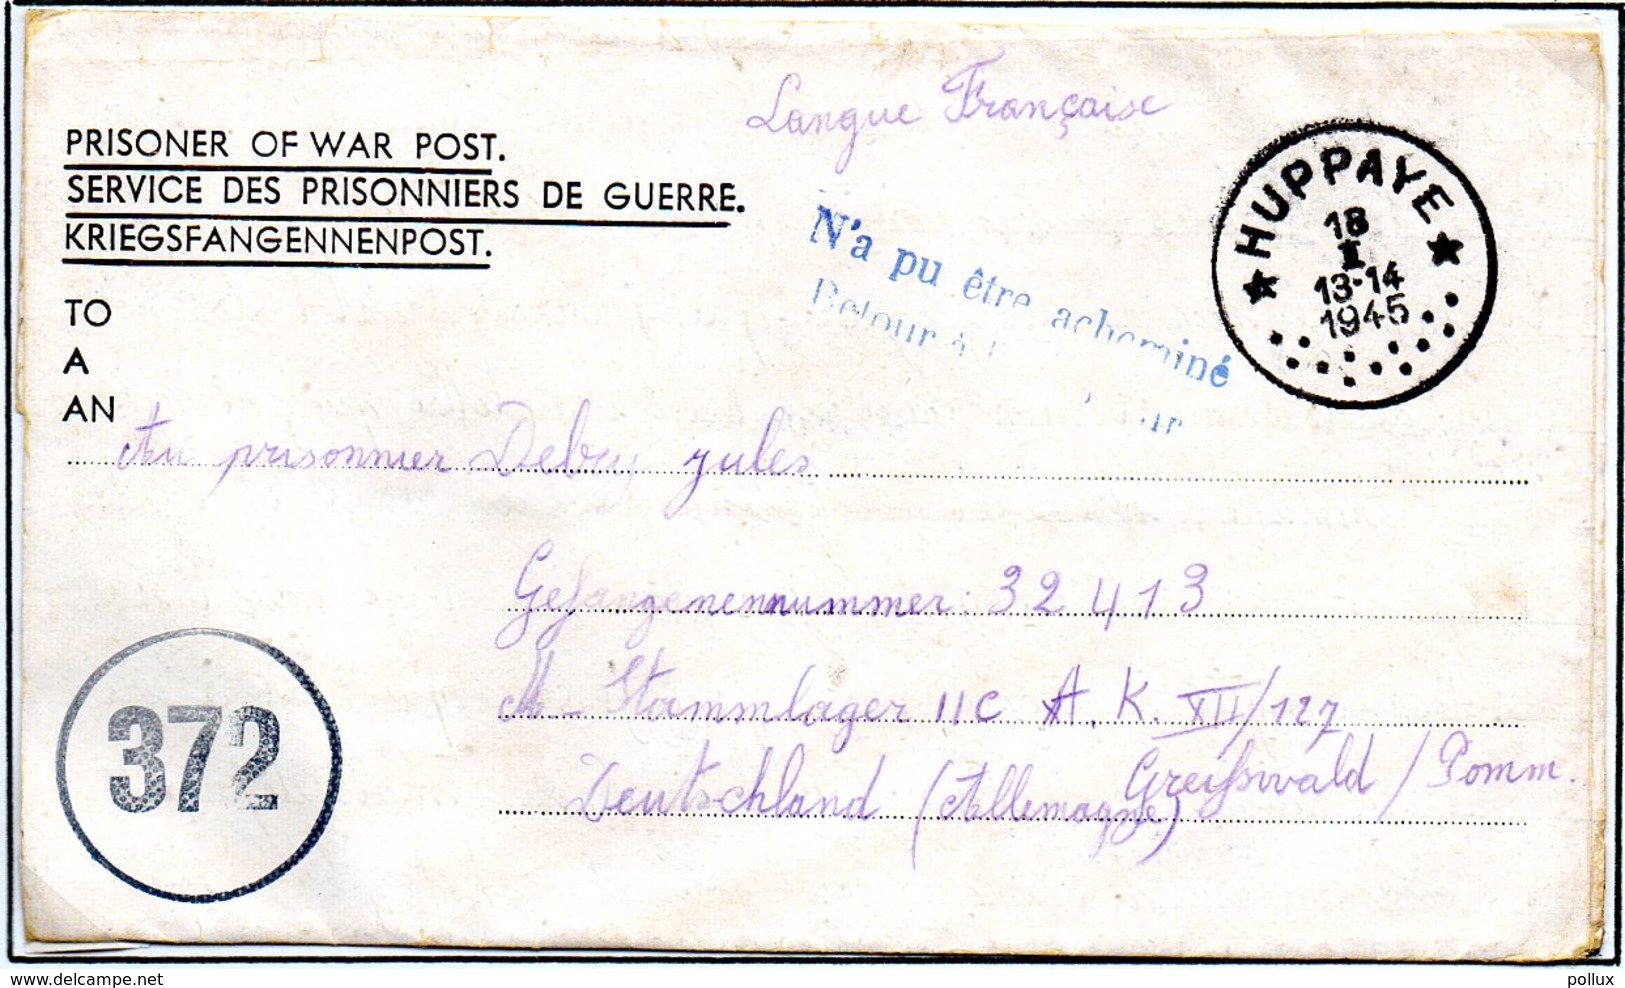 Langue Française
PRISONER OF WAR POST.
SERVICE DES PRISONNIERS DE GUERRE.
KRIEGSFANGENNENPOST.
HUPPAYE
18
I
13-14
1945
N'a pu être acheminé
Retour à
TO
A
AN
Au prisonnier Debry Jules
Gefangenennummer: 32413
M - Stammlager IIC A. K. XII/127
Greifswald / Pomm.
Deutschland (Allemagne)
372
www.delcampe.net
pollux